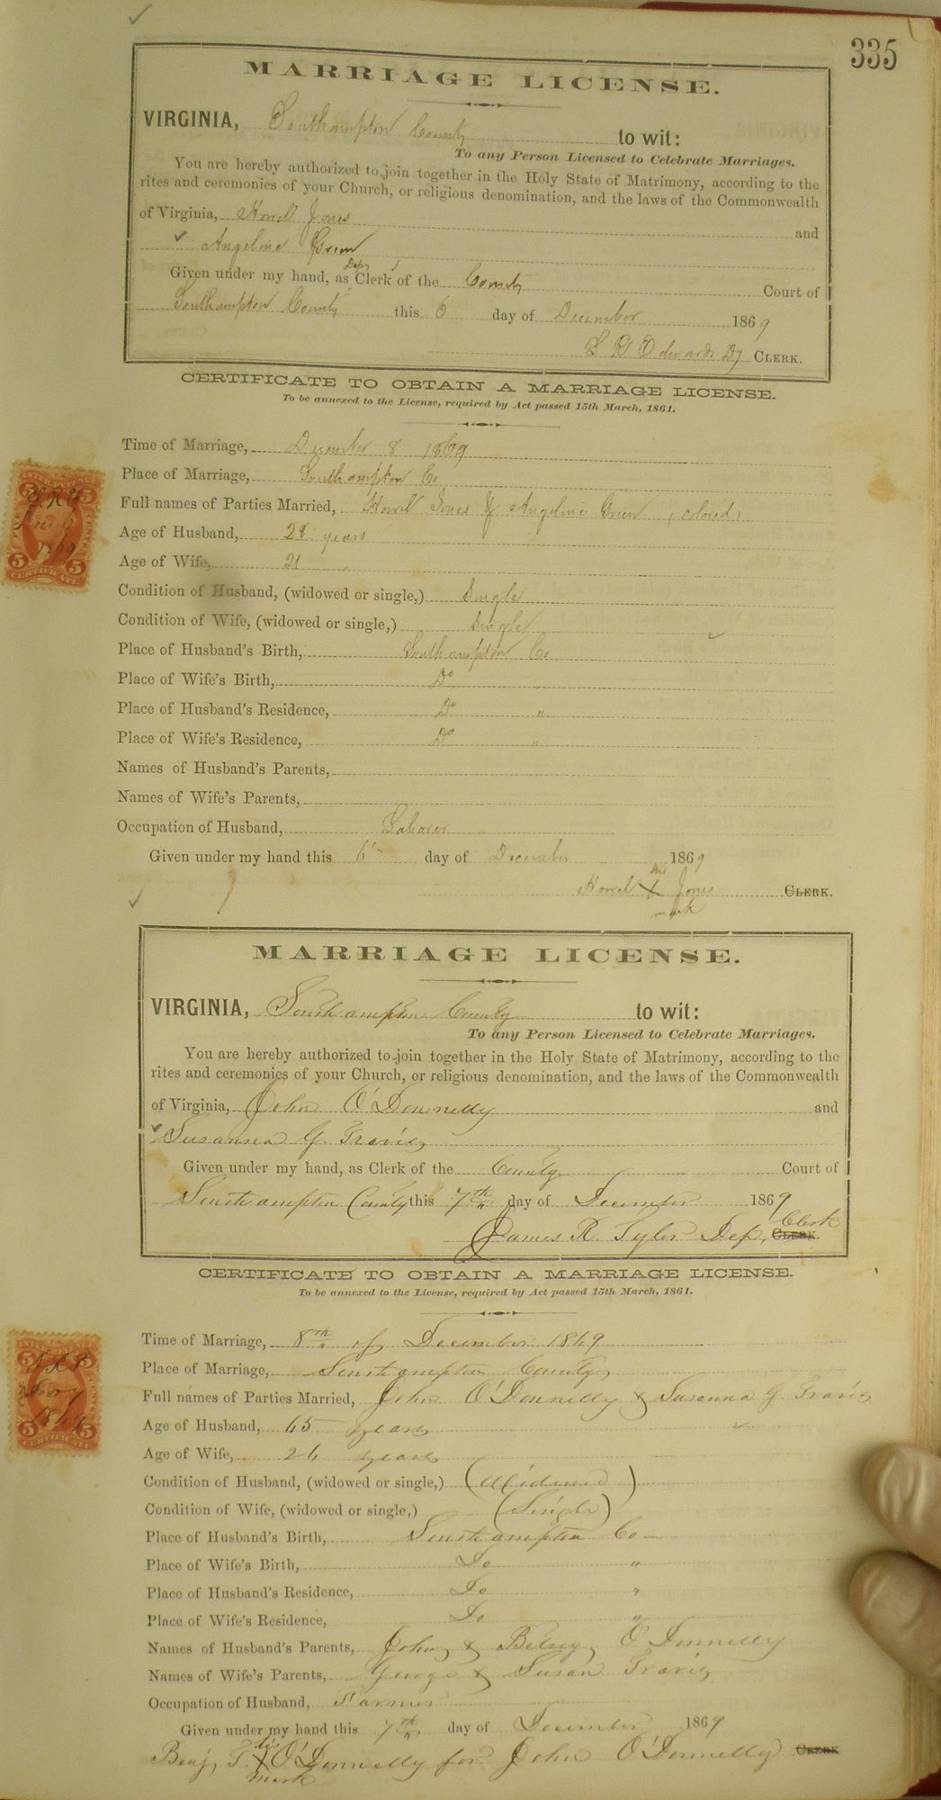 335
MARRIAGE LICENSE.
VIRGINIA, Southampton County to wit:
To any Person Licensed to Celebrate Marriages.
You are hereby authorized to join together in the Holy State of Matrimony, according to the
rites and ceremonies of your Church, or religious denomination, and the laws of the Commonwealth
of Virginia, Howell Jones and
Angeline Green
Given under my hand, as Depy Clerk of the County Court of
Southampton County this 6 day of December 1869
Edwards Dy CLERK.
CERTIFICATE TO OBTAIN A MARRIAGE LICENSE.
To be annexed to the License, required by Act passed 15th March, 1861.
Time of Marriage, December 8 1869
Place of Marriage, Southampton Co
Full names of Parties Married, Howell Jones & Angeline Green (colored)
Age of Husband, years
Age of Wife, 21 "
Condition of Husband, (widowed or single,) Single
Condition of Wife, (widowed or single,) Single
Place of Husband's Birth, Southampton Co
Place of Wife's Birth, Do "
Place of Husband's Residence, Do "
Place of Wife's Residence, Do "
Names of Husband's Parents,
Names of Wife's Parents,
Occupation of Husband, Laborer
Given under my hand this 6 day of December 1869
his
Howel X Jones CLERK.
mark
MARRIAGE LICENSE.
VIRGINIA, Southampton County to wit:
To any Person Licensed to Celebrate Marriages.
You are hereby authorized to join together in the Holy State of Matrimony, according to the
rites and ceremonies of your Church, or religious denomination, and the laws of the Commonwealth
of Virginia, John O'Donnelly and
Susanna G. Travis
Given under my hand, as Clerk of the County Court of
Southampton County this 7th day of December 1869
James R. Tyler Dep. Clerk CLERK.
CERTIFICATE TO OBTAIN A MARRIAGE LICENSE.
To be annexed to the License, required by Act passed 15th March, 1861.
Time of Marriage, 8th of December 1869
Place of Marriage, Southampton County
Full names of Parties Married, John O'Donnelly & Susanna G. Travis
Age of Husband, 65 years
Age of Wife, 26 years
Condition of Husband, (widowed or single,) (Widowed)
Condition of Wife, (widowed or single,) (Single)
Place of Husband's Birth, Southampton Co
Place of Wife's Birth, Do "
Place of Husband's Residence, Do "
Place of Wife's Residence, Do "
Names of Husband's Parents, John & Betsey O'Donnelly
Names of Wife's Parents, George & Susan Travis
Occupation of Husband, Farmer
Given under my hand this 7th day of December 1869
his
Benj. T. X O'Donnelly for John O'Donnelly CLERK
mark